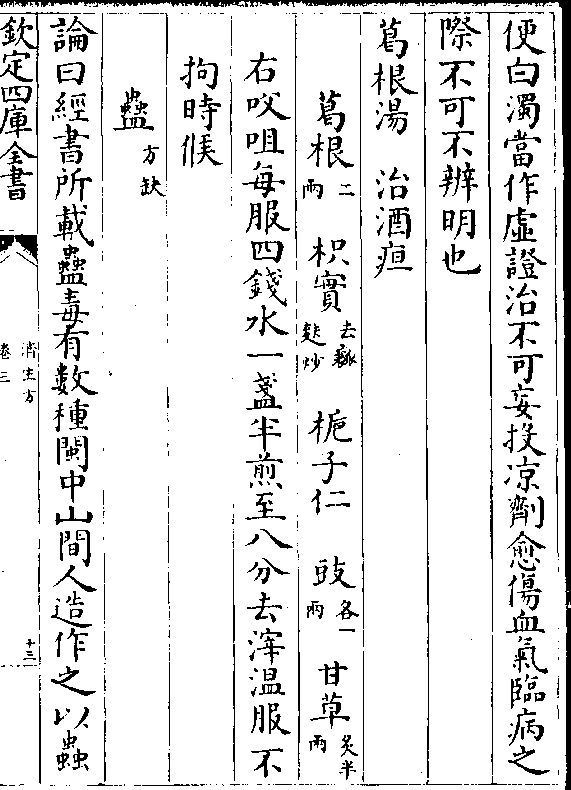 便白濁當作虛證治不可妄投凉劑愈傷血氣臨病之
際不可不辨明也
葛根湯　治酒疸
葛根二兩　枳實去瓤麩炒　梔子仁　豉各一兩　甘草炙半兩
右㕮咀每服四錢水一盞半煎至八分去滓温服不
拘時候
蠱方缺
論曰經書所載蠱毒有數種閩中山間人造作之以蟲
欽定四庫全書
濟生方
卷三
十三